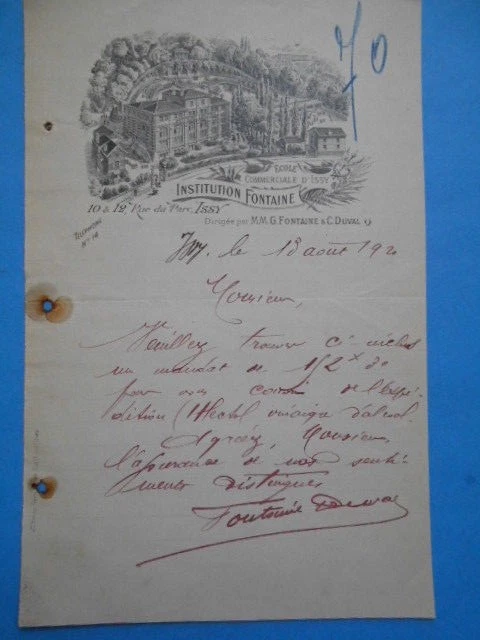 70
ECOLE
COMMERCIALE D'ISSY
INSTITUTION FONTAINE
10 & 12, Rue du Parc, ISSY
Dirigée par M.M. G. FONTAINE & C. DUVAL
TELEPHONE
No 14
Issy, le 18 août 192
Monsieur,
Veuillez trouver ci inclus
un mandat de 152
de l'expé-
dition (1 Hectol vinaigre d'alcool
Agréez, Monsieur,
l'assurance de nos senti-
ments distingués
Fontaine Duval